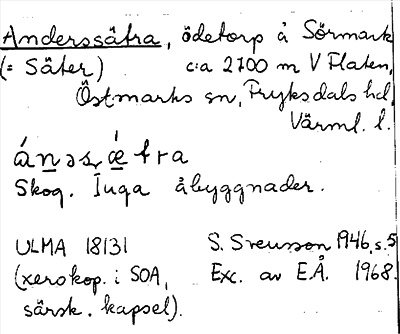 Anderssätra, ödetorp å Sörmark
(= Säter) c:a 2700 m V Flaten,
Östmarks sn, Fryksdals hd,
Värml. l.
ánəsǽtra
Skog. Inga åbyggnader.
ULMA 18131 S. Svensson 1946, s. 5
(xerokop. i SOA, Exc. av E.Å. 1968.
särsk. kapsel).